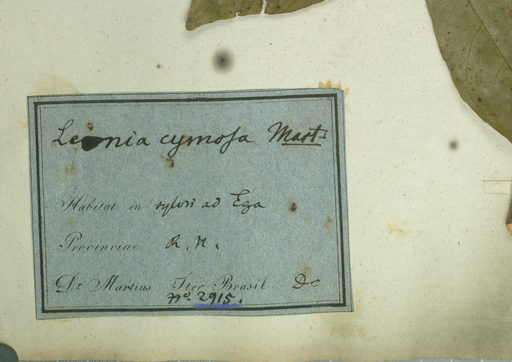 Leonia cymosa Mart.
Habitat in sylvis ad Ega
Provinciae R. N.
Dr. Martius Iter Brasil. Dc
No. 2915.